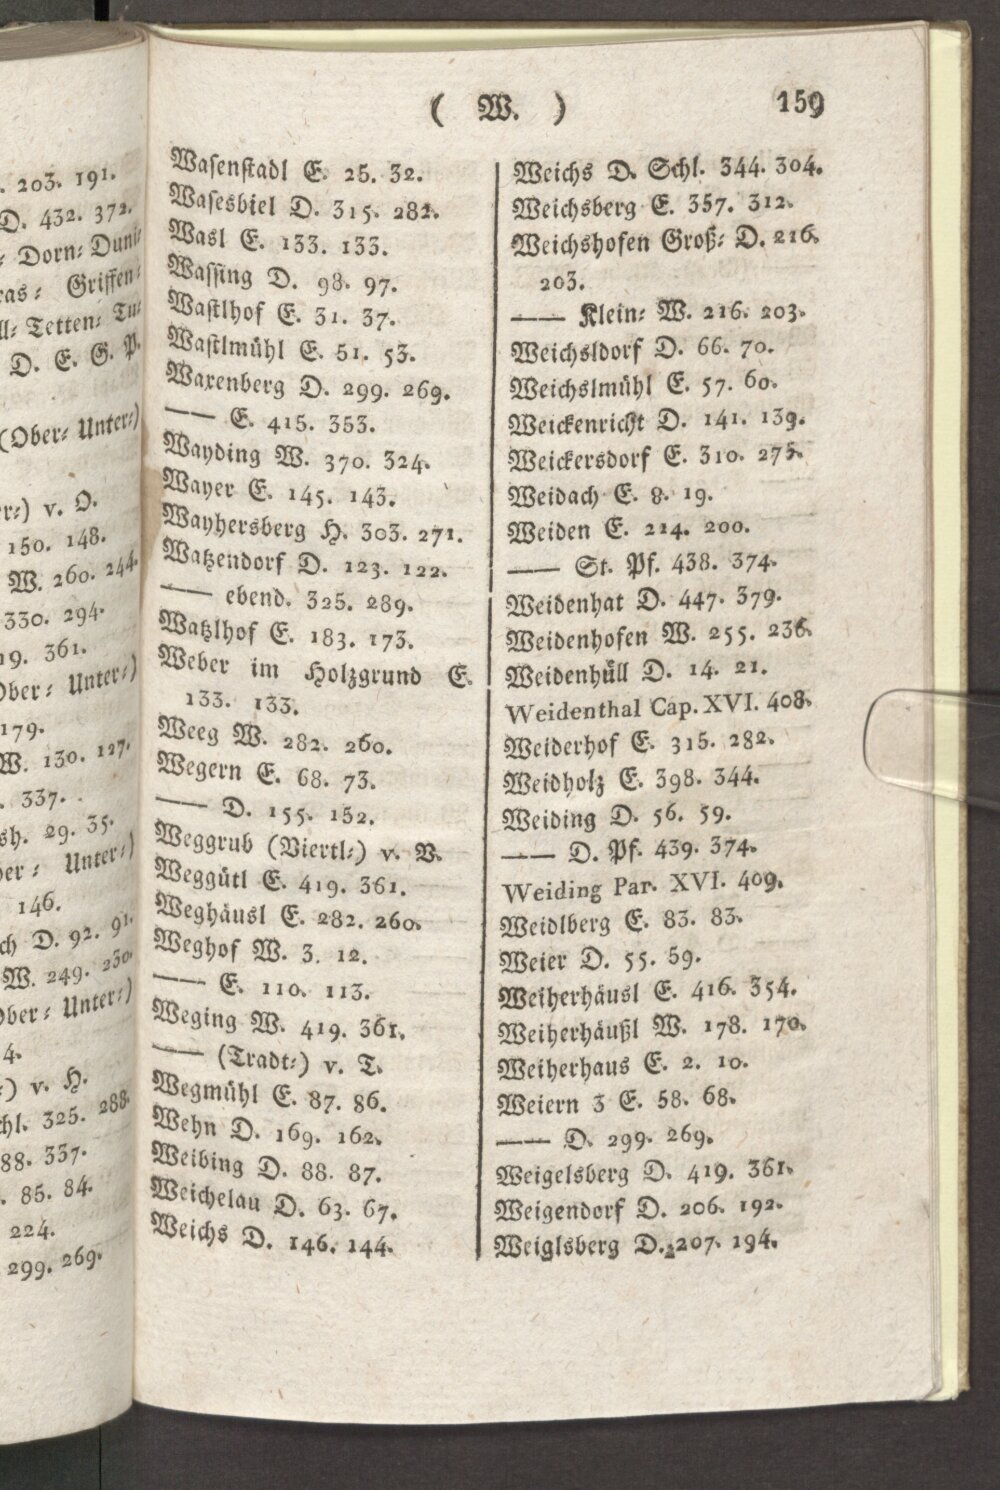 . 203. 191.
D. 432. 372.
Dorn⸗ Duni⸗
ras⸗ Griffen⸗
ll⸗ Tetten⸗ Tu⸗
D. E. G. P.
(Ober⸗ Unter⸗)
r⸗) v. O.
150. 148.
W. 260. 244.
330. 294.
19. 361.
Ober⸗ Unter⸗)
179.
W. 130. 127.
. 337.
sh. 29. 35.
er⸗ Unter⸗)
146.
ch D. 92. 91.
W. 249. 230.
Ober⸗ Unter⸗)
4.
⸗) v. H.
chl. 325. 288.
88. 337.
. 85. 84.
224.
299. 269.
( W. ) 159
Wasenstadl E. 25. 32.
Wasesbiel D. 315. 282.
Wasl E. 133. 133.
Wassing D. 98. 97.
Wastlhof E. 31. 37.
Wastlmühl E. 51. 53.
Waxenberg D. 299. 269.
—— E. 415. 353.
Wayding W. 370. 324.
Wayer E. 145. 143.
Wayhersberg H. 303. 271.
Watzendorf D. 123. 122.
—— ebend. 325. 289.
Watzlhof E. 183. 173.
Weber im Holzgrund E.
133. 133.
Weeg W. 282. 260.
Wegern E. 68. 73.
—— D. 155. 152.
Weggrub (Viertl⸗) v. V.
Weggütl E. 419. 361.
Weghäusl E. 282. 260.
Weghof W. 3. 12.
—— E. 110. 113.
Weging W. 419. 361.
—— (Tradt⸗) v. T.
Wegmühl E. 87. 86.
Wehn D. 169. 162.
Weibing D. 88. 87.
Weichelau D. 63. 67.
Weichs D. 146. 144.
Weichs D. Schl. 344. 304.
Weichsberg E. 357. 312.
Weichshofen Groß⸗ D. 216.
203.
—— Klein⸗ W. 216. 203.
Weichsldorf D. 66. 70.
Weichslmühl E. 57. 60.
Weickenricht D. 141. 139.
Weickersdorf E. 310. 275.
Weidach E. 8. 19.
Weiden E. 214. 200.
—— St. Pf. 438. 374.
Weidenhat D. 447. 379.
Weidenhofen W. 255. 236.
Weidenhüll D. 14. 21.
Weidenthal Cap. XVI. 408.
Weiderhof E. 315. 282.
Weidholz E. 398. 344.
Weiding D. 56. 59.
—— D. Pf. 439. 374.
Weiding Par. XVI. 409.
Weidlberg E. 83. 83.
Weier D. 55. 59.
Weiherhäusl E. 416. 354.
Weiherhäußl W. 178. 170.
Weiherhaus E. 2. 10.
Weiern 3 E. 58. 68.
—— D. 299. 269.
Weigelsberg D. 419. 361.
Weigendorf D. 206. 192.
Weiglsberg D. 207. 194.